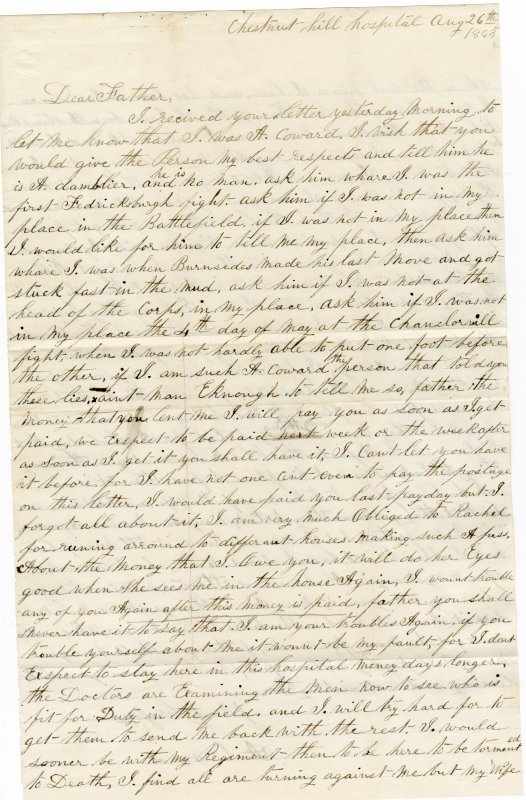 Chestnut hill hospital Aug 26th
1863
Dear Father,
I. recived your letter yesterday Morning to
let me know that I. was A. Coward, I. wish that you
would give the Person my best respects and tell him he
is A. damblier, and he is no man. ask him whare I. was the
first Fedricksburgh fight. ask him if I. was not in my
place in the Battlefield, if I. was not in my place then
I. would like for him to tell me my place, then ask him
whare I. was when Burnsides made his last move and got
stuck fast in the mud, ask him if I. was not at the
head of the Corps, in my place, ask him if I. was not
in my place the 4th day of may at the Chancelorvill
fight, when I. was not hardly able to put one foot before
the other, if I. am such A. Coward the person that told you
these lies, aint man Eknough to tell me so, father the
money that you lent me I. will pay you as soon as I. get
paid, we Expect to be paid next week or the week after
as soon as I. get it you shall have it, I. Cant let you have
it before, for I. have not one Cent even to pay the postage
on this letter, I. would have paid you last payday but I.
forgot all about it, I. am very much Obliged to Rachel
for runing arround to differant houses making such A fuss,
About the money that I. owe you, it will do her Eyes
good when she sees me in the house Again, I. wount trouble
any of you Again after this money is paid, father you shall
never have it to say that I. am your troubles Again, if you
trouble yourself about me it wount be my fault, for I. dont
Expect to stay here in this hospital meney days longer,
the Doctors are Examining the men now to see who is
fit for Duty in the field. and I. will try hard for to
get them to send me back with the rest. I. would
sooner be with my Regiment then to be here to be tormented
to Death, I. find all are turning against me but my Wife